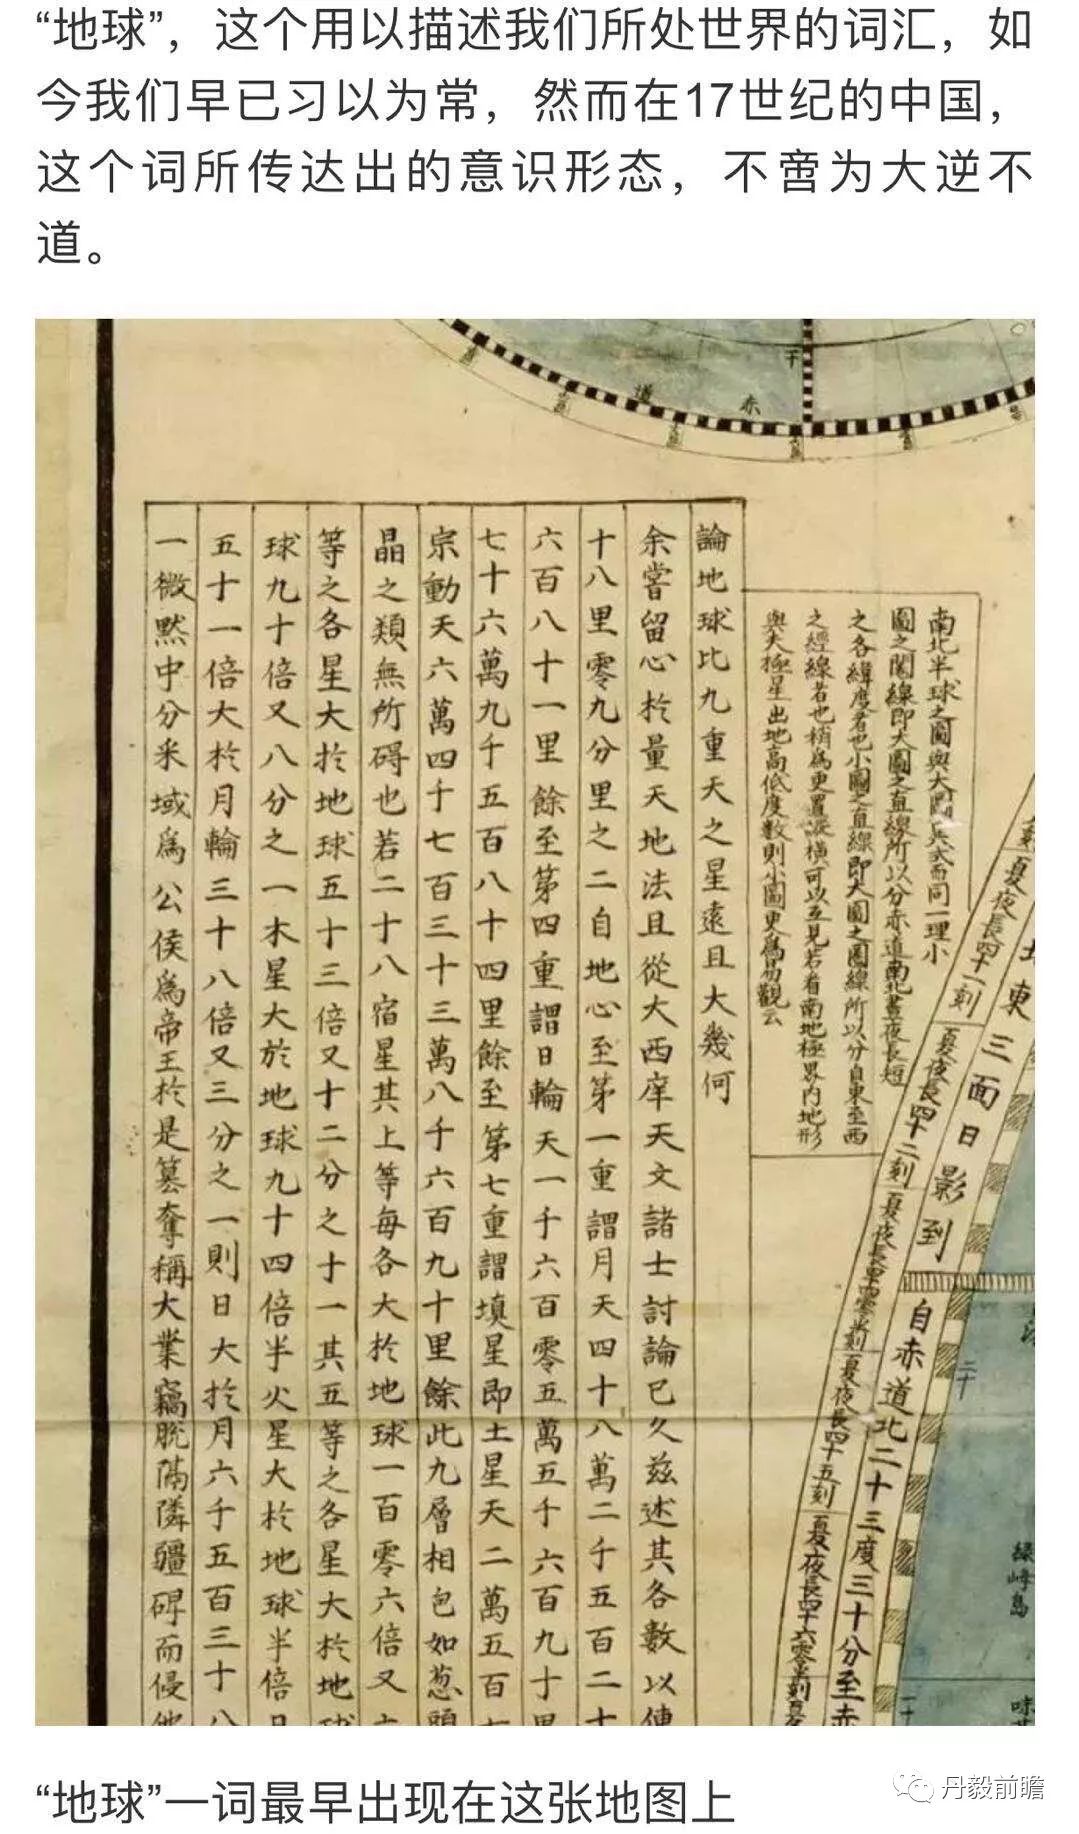 “地球”，这个用以描述我们所处世界的词汇，如
今我们早已习以为常，然而在17世纪的中国，
这个词所传达出的意识形态，不啻为大逆不
道。
赤
道
論地球比九重天之星遠且大幾何
余嘗留心於量天地法且從大西庠天文諸士討論已久茲述其各數以傳
十八里零九分里之二自地心至第一重謂月天四十八萬二千五百二十
六百八十一里餘至第四重謂日輪天一千六百零五萬五千六百九十里
七十六萬九千五百八十四里餘至第七重謂填星即土星天二萬五百七
宗動天六萬四千七百三十三萬八千六百九十里餘此九層相包如葱頭
晶之類無所碍也若二十八宿星其上等每各大於地球一百零六倍又六
等之各星大於地球五十三倍又十二分之十一其五等之各星大於地球
球九十倍又八分之一木星大於地球九十四倍半火星大於地球半倍日
五十一倍大於月輪三十八倍又三分之一則日大於月六千五百三十八
一微㸃中分采域為公侯為帝王於是篡奪稱大業竊脫隔隣疆碍而侵他
南北半球之圖與大圖異式而同一理小
圖之圈線即大圖之直線所以分赤道南北晝夜長短
之各緯度者也小圖之直線即大圖之圈線所以分自東至西
之經線者也稍為更置縱橫可以互見若看南地極界內地形
與夫極星出地高低度數則小圖更為易觀云
夏夜長四十一刻
夏夜長四十二刻
夏夜長四十五刻
北東三面日影到
自赤道北二十三度三十分至赤
二十
綠峰島
“地球”一词最早出现在这张地图上
丹毅前瞻